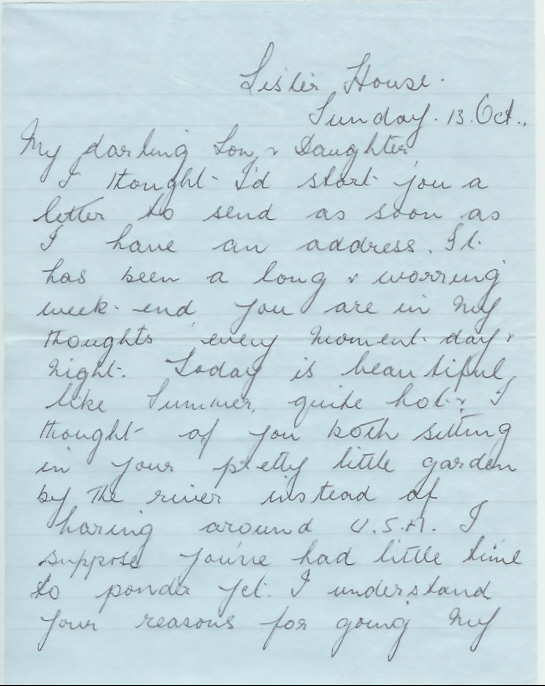 Lister House.
Sunday. 13. Oct.,
My darling Son, & Daughter
I thought I'd start you a
letter to send as soon as
I have an address. It
has been a long & worring
week-end you are in My
thoughts every moment day &
Night. Today is beautiful,
like Summer, quite hot & I
thought of you both sitting
in your pretty little garden
by the river instead of
haring around U.S.A. I
suppose you've had little time
to ponder yet. I understand
your reasons for going My